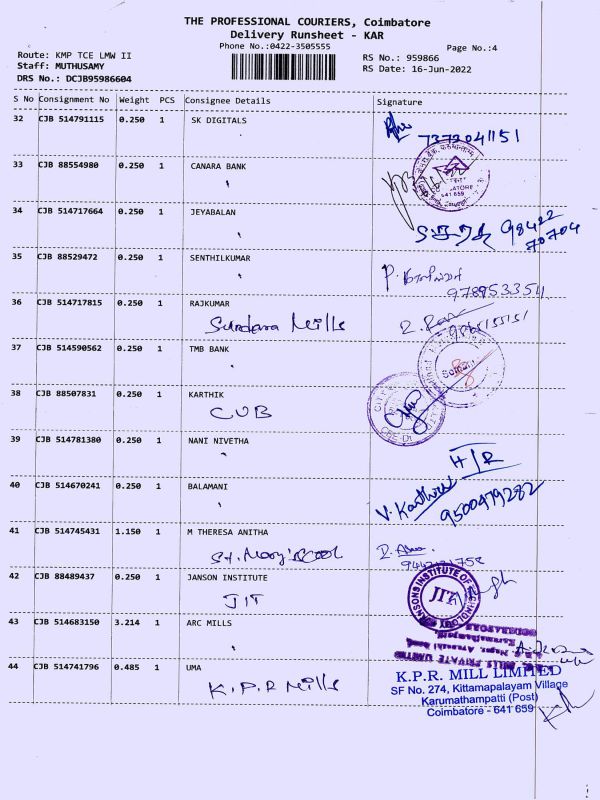 THE PROFESSIONAL COURIERS, Coimbatore
Delivery Runsheet - KAR
Phone No.:0422-3505555
Page No.:4
Route: KMP TCE LMW II
Staff: MUTHUSAMY
DRS No.: DCJB95986604
RS No.: 959866
RS Date: 16-Jun-2022
S No Consignment No Weight PCS Consignee Details Signature
32 CJB 514791115 0.250 1 SK DIGITALS
7372041151
33 CJB 88554980 0.250 1 CANARA BANK
641 659
34 CJB 514717664 0.250 1 JEYABALAN
98422
70704
35 CJB 88529472 0.250 1 SENTHILKUMAR
36 CJB 514717815 0.250 1 RAJKUMAR
Sundara Mills
37 CJB 514590562 0.250 1 TMB BANK
38 CJB 88507831 0.250 1 KARTHIK
CUB
39 CJB 514781380 0.250 1 NANI NIVETHA
H/R
40 CJB 514670241 0.250 1 BALAMANI
V. Karthik
9500479282
41 CJB 514745431 1.150 1 M THERESA ANITHA
St. Mary's
42 CJB 88489437 0.250 1 JANSON INSTITUTE
JIT
JANSONS INSTITUTE OF TECHNOLOGY
JIT
43 CJB 514683150 3.214 1 ARC MILLS
44 CJB 514741796 0.485 1 UMA
K.P.R Mills
K.P.R. MILL LIMITED
SF No. 274, Kittampalayam Village
Karumathampatti (Post)
Coimbatore - 641 659